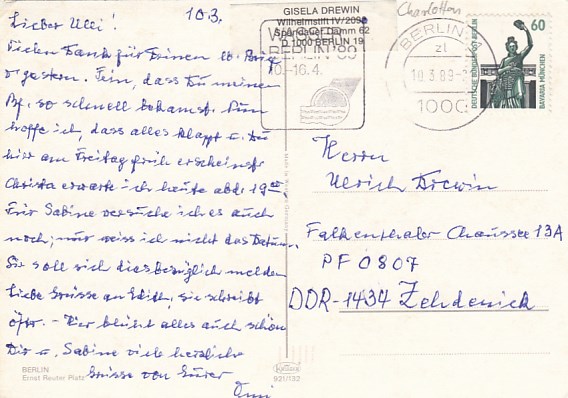 10.3.
Lieber Ulli!
Vielen Dank für Deinen lb. Brief
v. gestern. Fein, dass Du meinen
Bf. so schnell bekamst. Nun
hoffe ich, dass alles klappt u. Du
hier am Freitag früh erscheinst
Christa erwarte ich heute abd. 19
Für Sabine versuche ich es auch
noch; nur weiss ich nicht das Datum.
Sie soll sich diesbezüglich melden
Liebe Grüsse an Edith, sie schreibt
öfter. - Hier blüht alles auch schön
Dir u. Sabine viele herzliche
Grüsse von Eurer
Omi
BERLIN
Ernst Reuter Platz
GISELA DREWIN
Wilhelmstift IV/209
Spandauer Damm 62
D 1000 BERLIN 19
WASSER
BERLIN '89
10.-16.4.
Charlotten
BERLIN
zl
10.3.89
1000
60
DEUTSCHE BUNDESPOST BERLIN
BAVARIA MÜNCHEN
Herrn
Ulrich Drewin
Falkenthaler Chaussee 13A
PF 0807
DDR-1434 Zehdenick
921/132